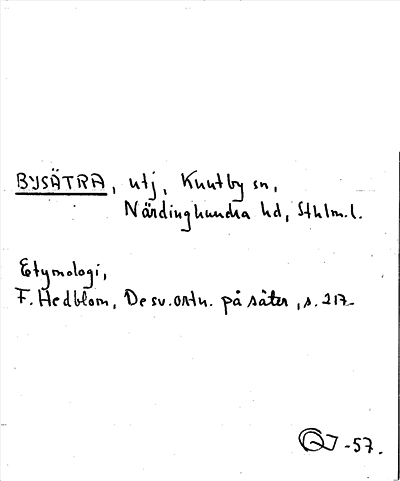 BYSÄTRA, utj, Knutby sn,
Närdinghundra hd, Sthlm.l.
Etymologi,
F. Hedblom, De sv. ortn. på säter, s. 217.
-57.